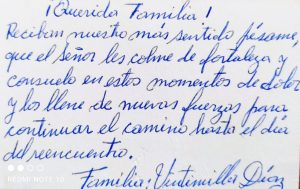 ¡Querida Familia!
Reciban nuestro más sentido pésame,
que el Señor les colme de fortaleza y
consuelo en estos momentos de dolor
y los llene de nuevas fuerzas para
continuar el camino hasta el día
del reencuentro.
Familia: Vintimilla Díaz
REDMI NOTE 10